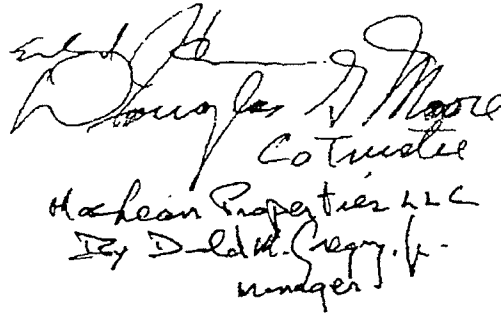 Douglas G Moore
CoTrustee
Properties LLC
By Donald M. Gregory, Jr.
manager